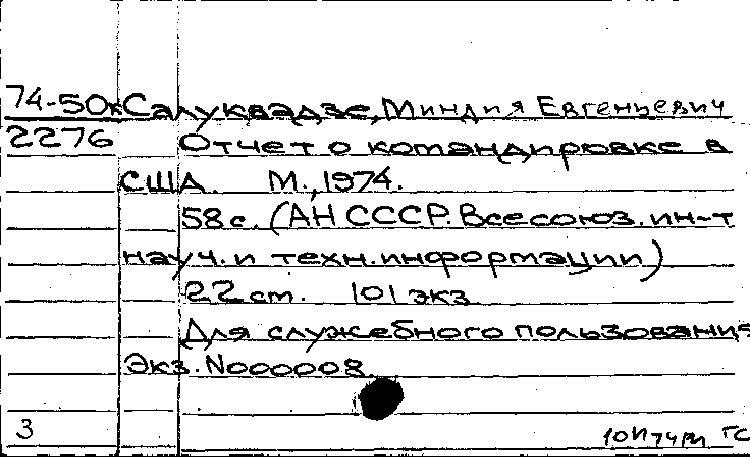 74-50к Салуквадзе, Миндия Евгеньевич
2276 Отчет о командировке в
США. М., 1974.
58 с. (АН СССР. Всесоюз. ин-т
науч. и техн. информации)
22 cm. 101 экз
Для служебного пользования
Экз. N000008.
3